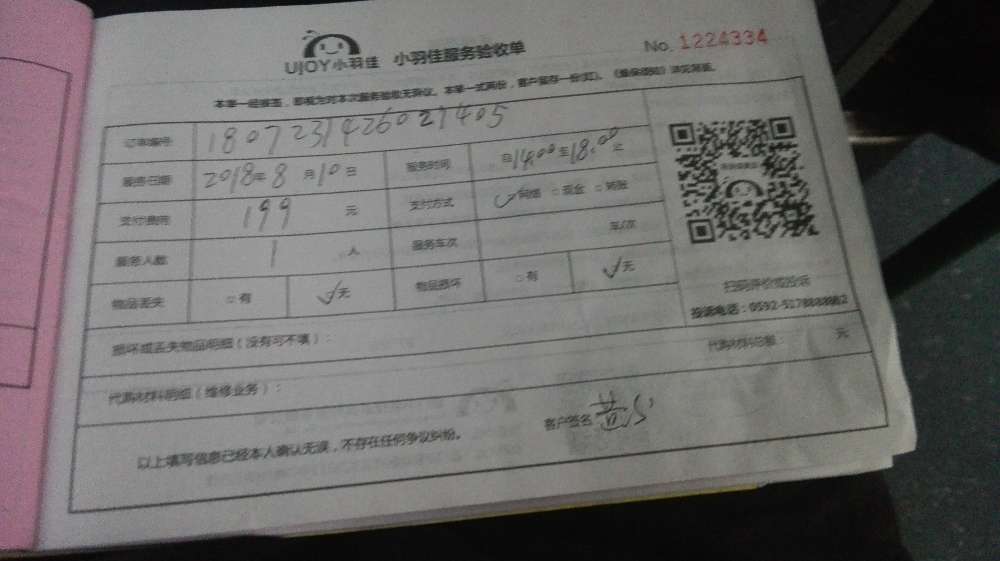 UJOY小羽佳 小羽佳服务验收单 No. 1224334
本单一经签署，即视为对本次服务验收无异议。本单一式两份，客户留存一份(红)。《维保须知》详见背面。
订单编号 1807231426021405
服务日期 2018年8月10日 服务时间 自14:00至18:00止
支付费用 199元 支付方式 网络 □现金 □转账
服务人数 1人 服务车次 车/次
物品丢失 □有 ✓无 物品损坏 □有 ✓无
扫码评价或投诉
投诉电话：0592-5178888转2
损坏或丢失物品明细（没有可不填）：
代购材料明细（维修业务）： 代购材料总额： 元
以上填写信息已经本人确认无误，不存在任何争议纠纷。 客户签名